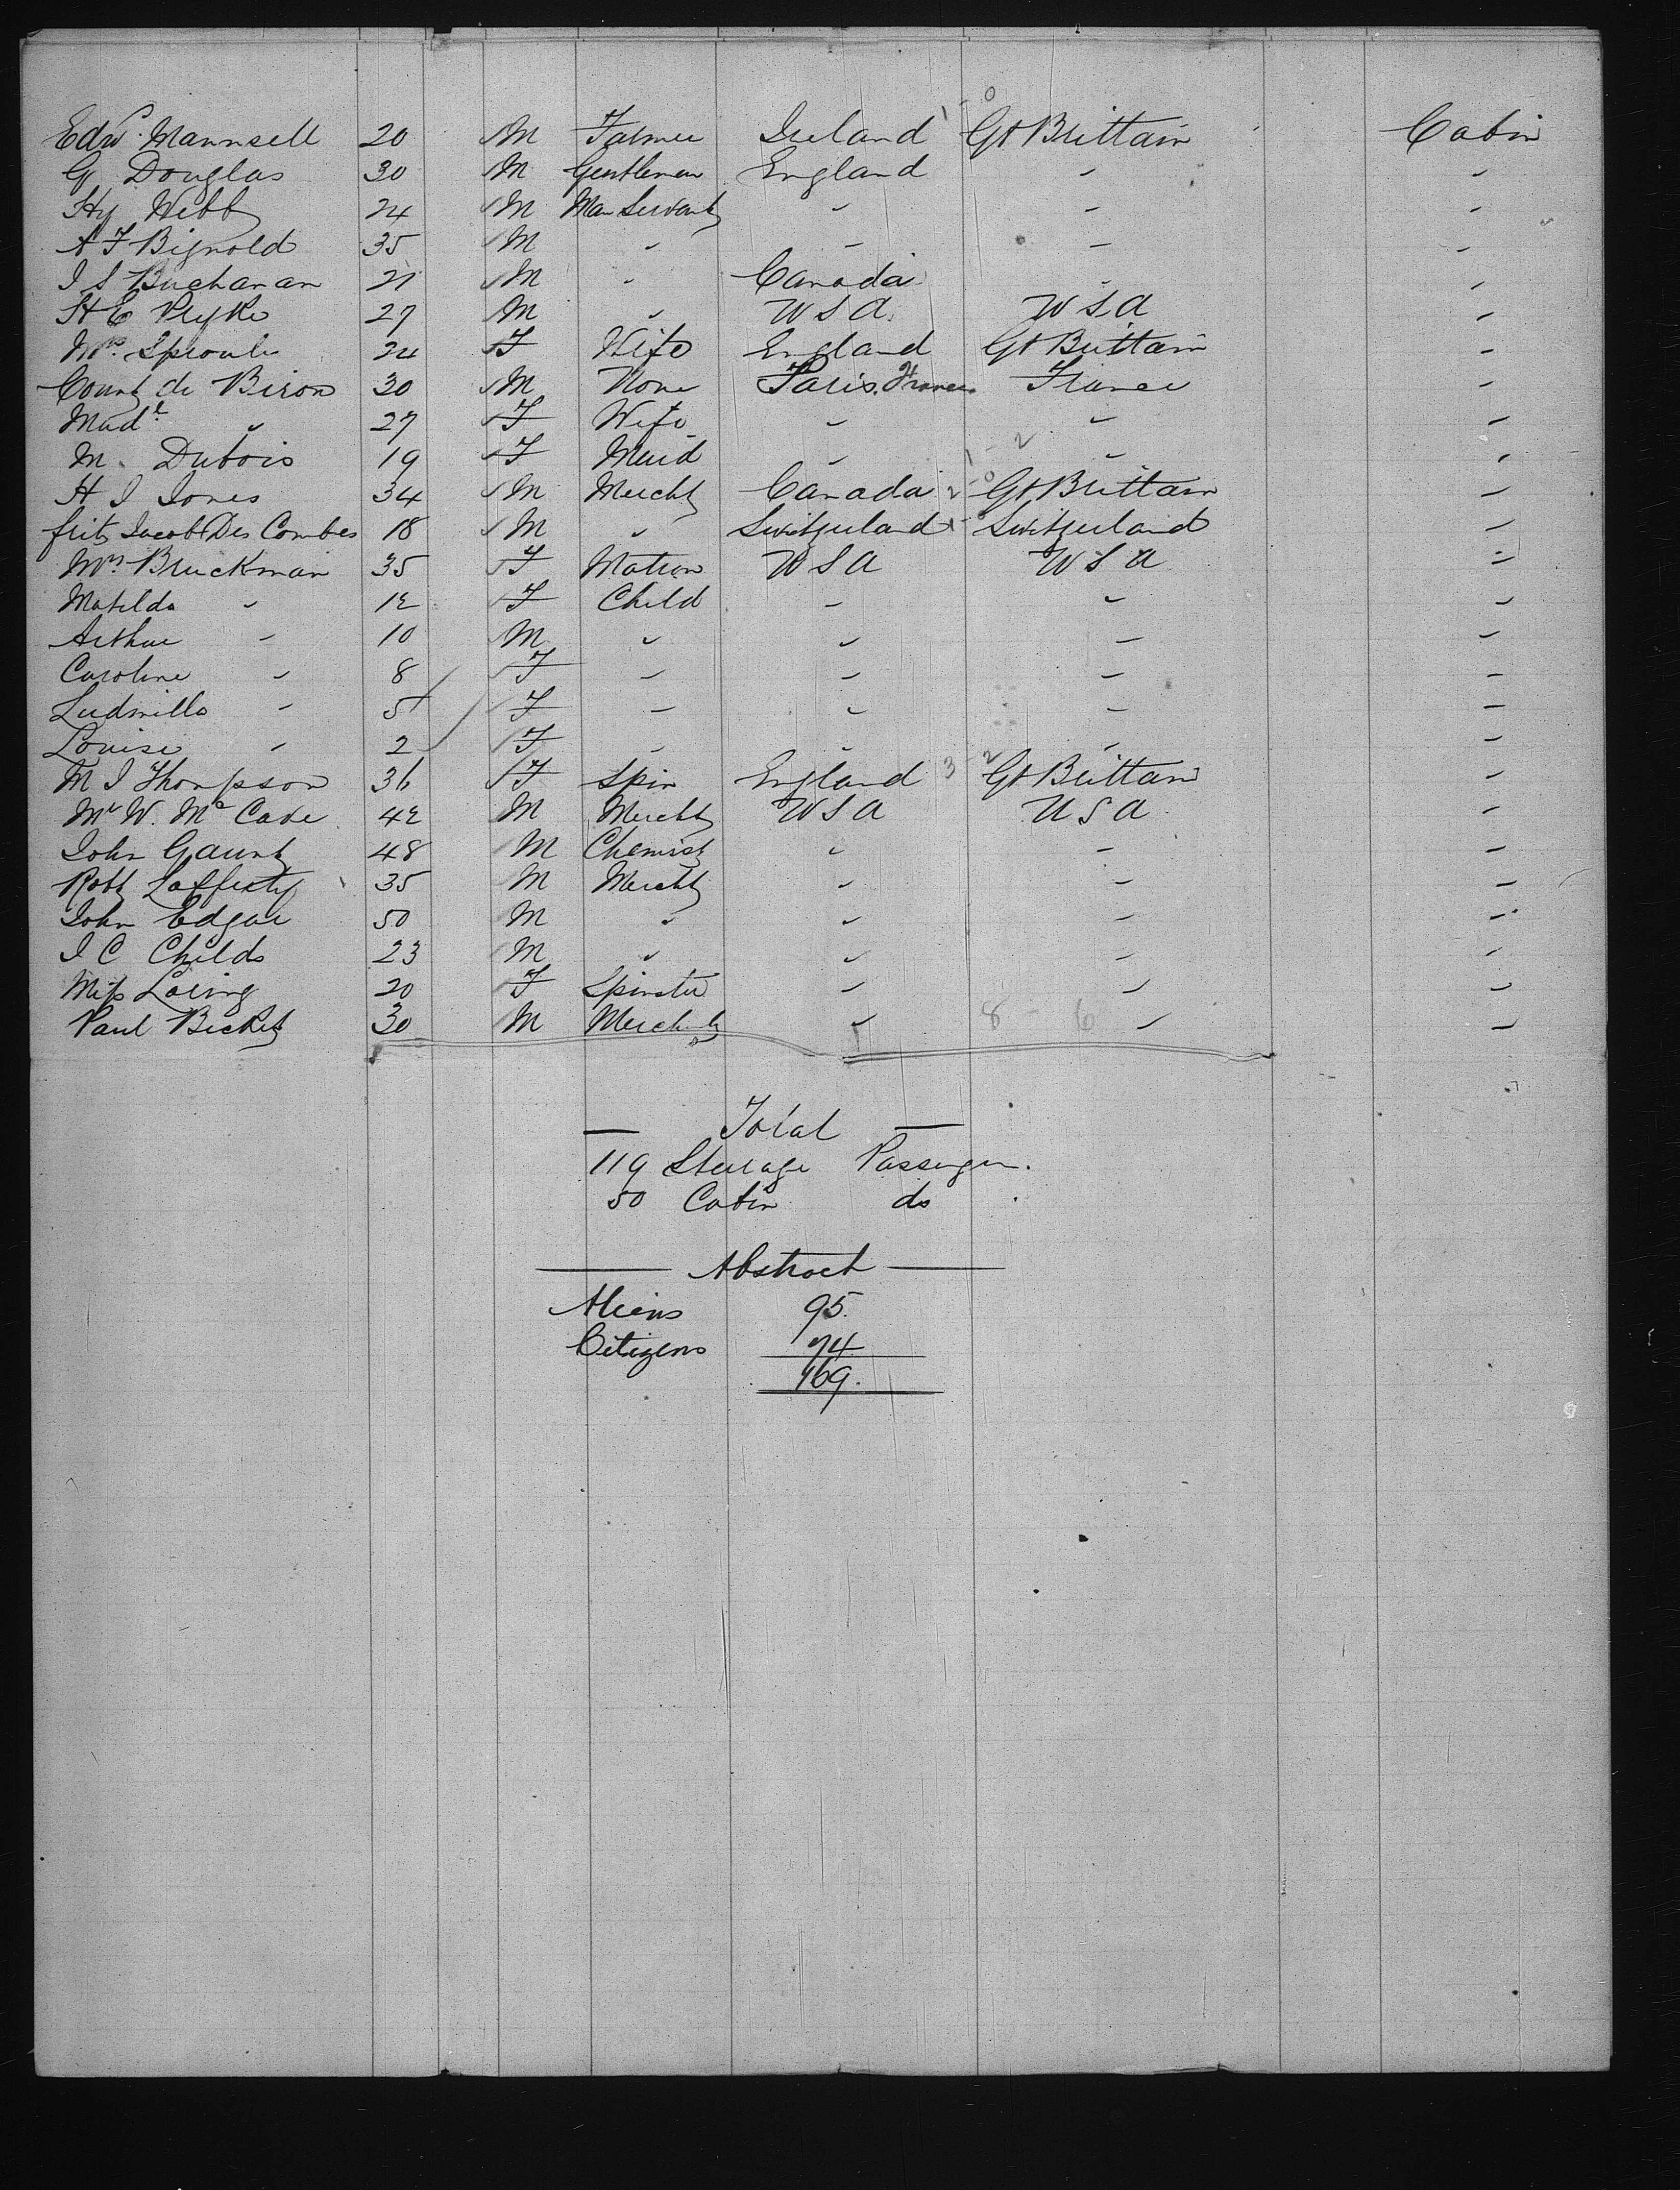 Edwd Mannsell 20 M Farmer Ireland Gt Brittain Cabin
G Douglas 30 M Gentleman England " "
Hy Webb 24 M Man Servant " " "
A F Bignold 35 M " " " "
I S Buchanan 21 M " Canada " "
H E Pryke 27 M " U S A U S A "
Mrs Sproule 24 F Wife England Gt Brittain "
Count de Biron 30 M None Paris. France France "
Made " 27 F Wife " " "
M. Dubois 19 F Maid " " "
H I Jones 34 M Mercht Canada Gt Brittain "
frits Jacob Des Combes 18 M " Switzerland Switzerland "
Mrs Bruckman 35 F Matron U S A U S A "
Matilda " 12 F Child " " "
Arthur " 10 M " " " "
Caroline " 8 F " " " "
Ludmilla " 5 F " " " "
Louise " 2 F " " " "
M I Thompson 36 F Spin England Gt Brittain "
Mr W. Mc Cave 42 M Mercht U S A U S A "
John Gaunt 48 M Chemist " " "
Robt Lafferty 35 M Mercht " " "
John Edgar 50 M " " " "
I C Childs 23 M " " " "
Miss Loring 20 F Spinster " " "
Paul Becket 30 M Mercht " 8 - 6 " "
Total
119 Steerage Passenger.
50 Cabin do
Abstract
Aliens 95.
Citizens 74
169.